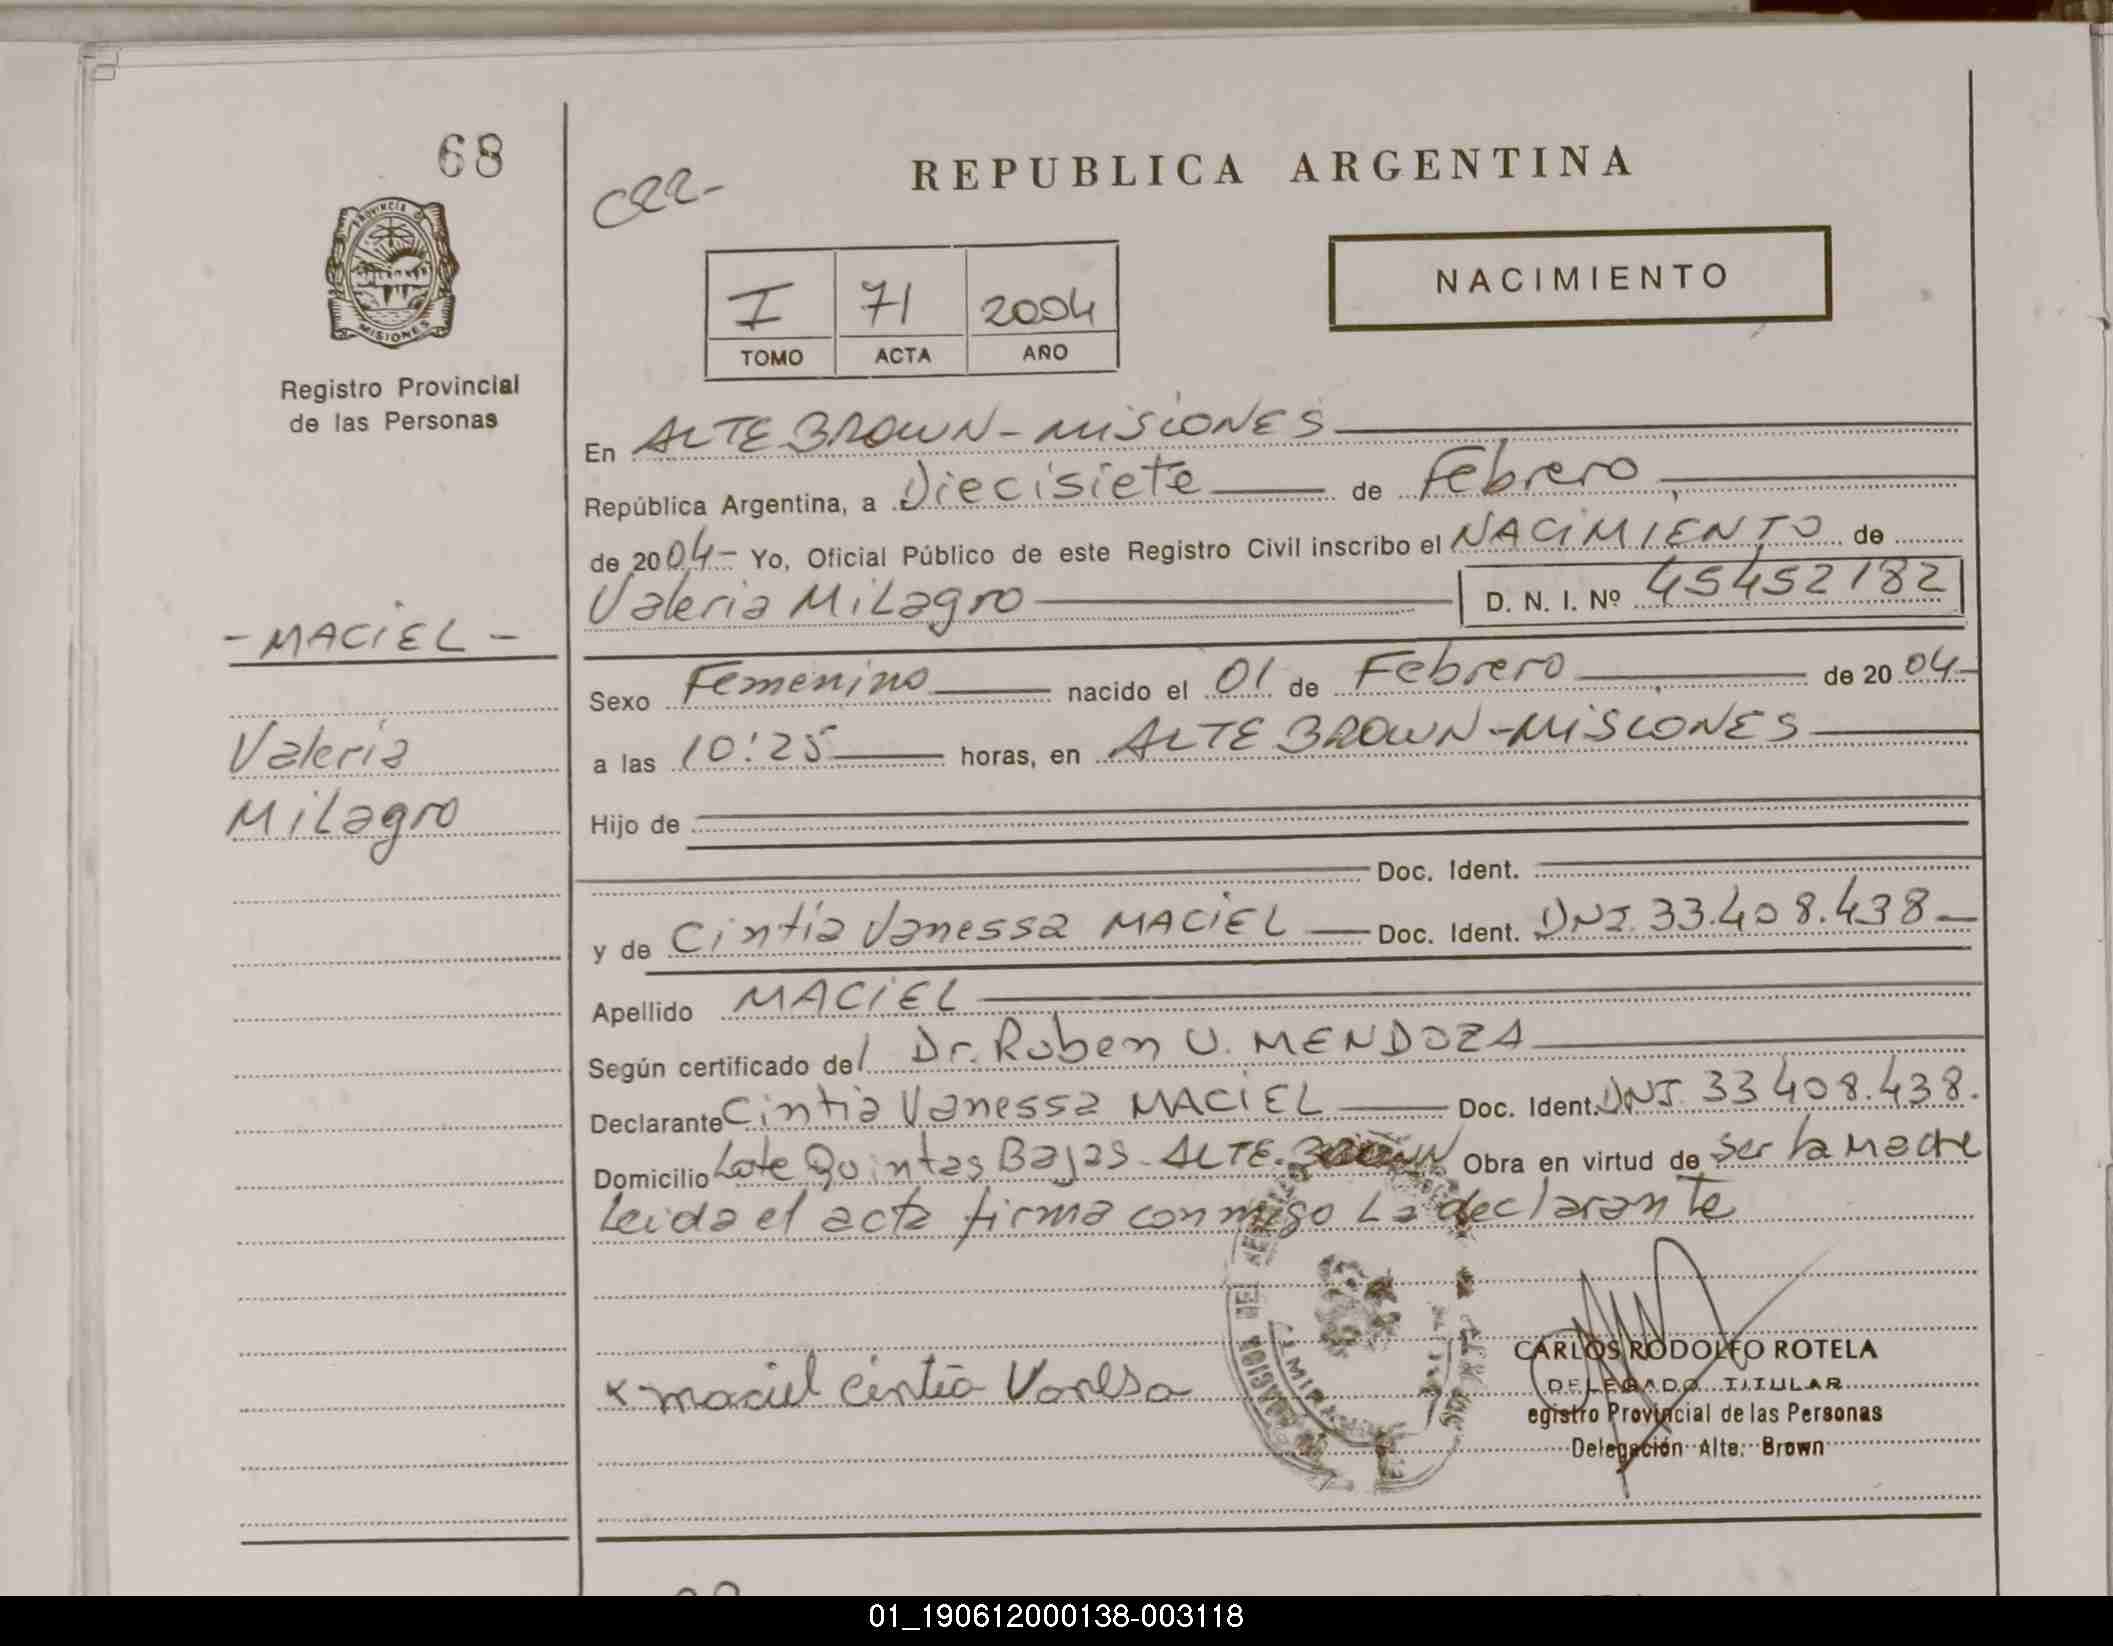 68
PROVINCIA DE
MISIONES
Registro Provincial
de las Personas
- MACIEL -
Valeria
Milagro
REPUBLICA ARGENTINA
NACIMIENTO
I 71 2004
TOMO ACTA AÑO
En ALTE BROWN - MISIONES
República Argentina, a Diecisiete de Febrero
de 2004- Yo, Oficial Público de este Registro Civil inscribo el NACIMIENTO de
Valeria Milagro D. N. I. Nº 45452182
Sexo Femenino nacido el 01 de Febrero de 2004-
a las 10:25 horas, en ALTE BROWN - MISIONES
Hijo de
Doc. Ident.
y de Cintia Vanessa MACIEL Doc. Ident. DNI. 33.408.438
Apellido MACIEL
Según certificado del Dr. Ruben U. MENDOZA
Declarante Cintia Vanessa MACIEL Doc. Ident. DNI. 33 408.438.
Domicilio Lote Quintas Bajas - ALTE. BROWN Obra en virtud de ser la Madre
Leida el acta firma conmigo La declarante
x maciel cintia Vanesa
CARLOS RODOLFO ROTELA
DELEGADO TITULAR
egistro Provincial de las Personas
Delegación Alte. Brown
01_190612000138-003118